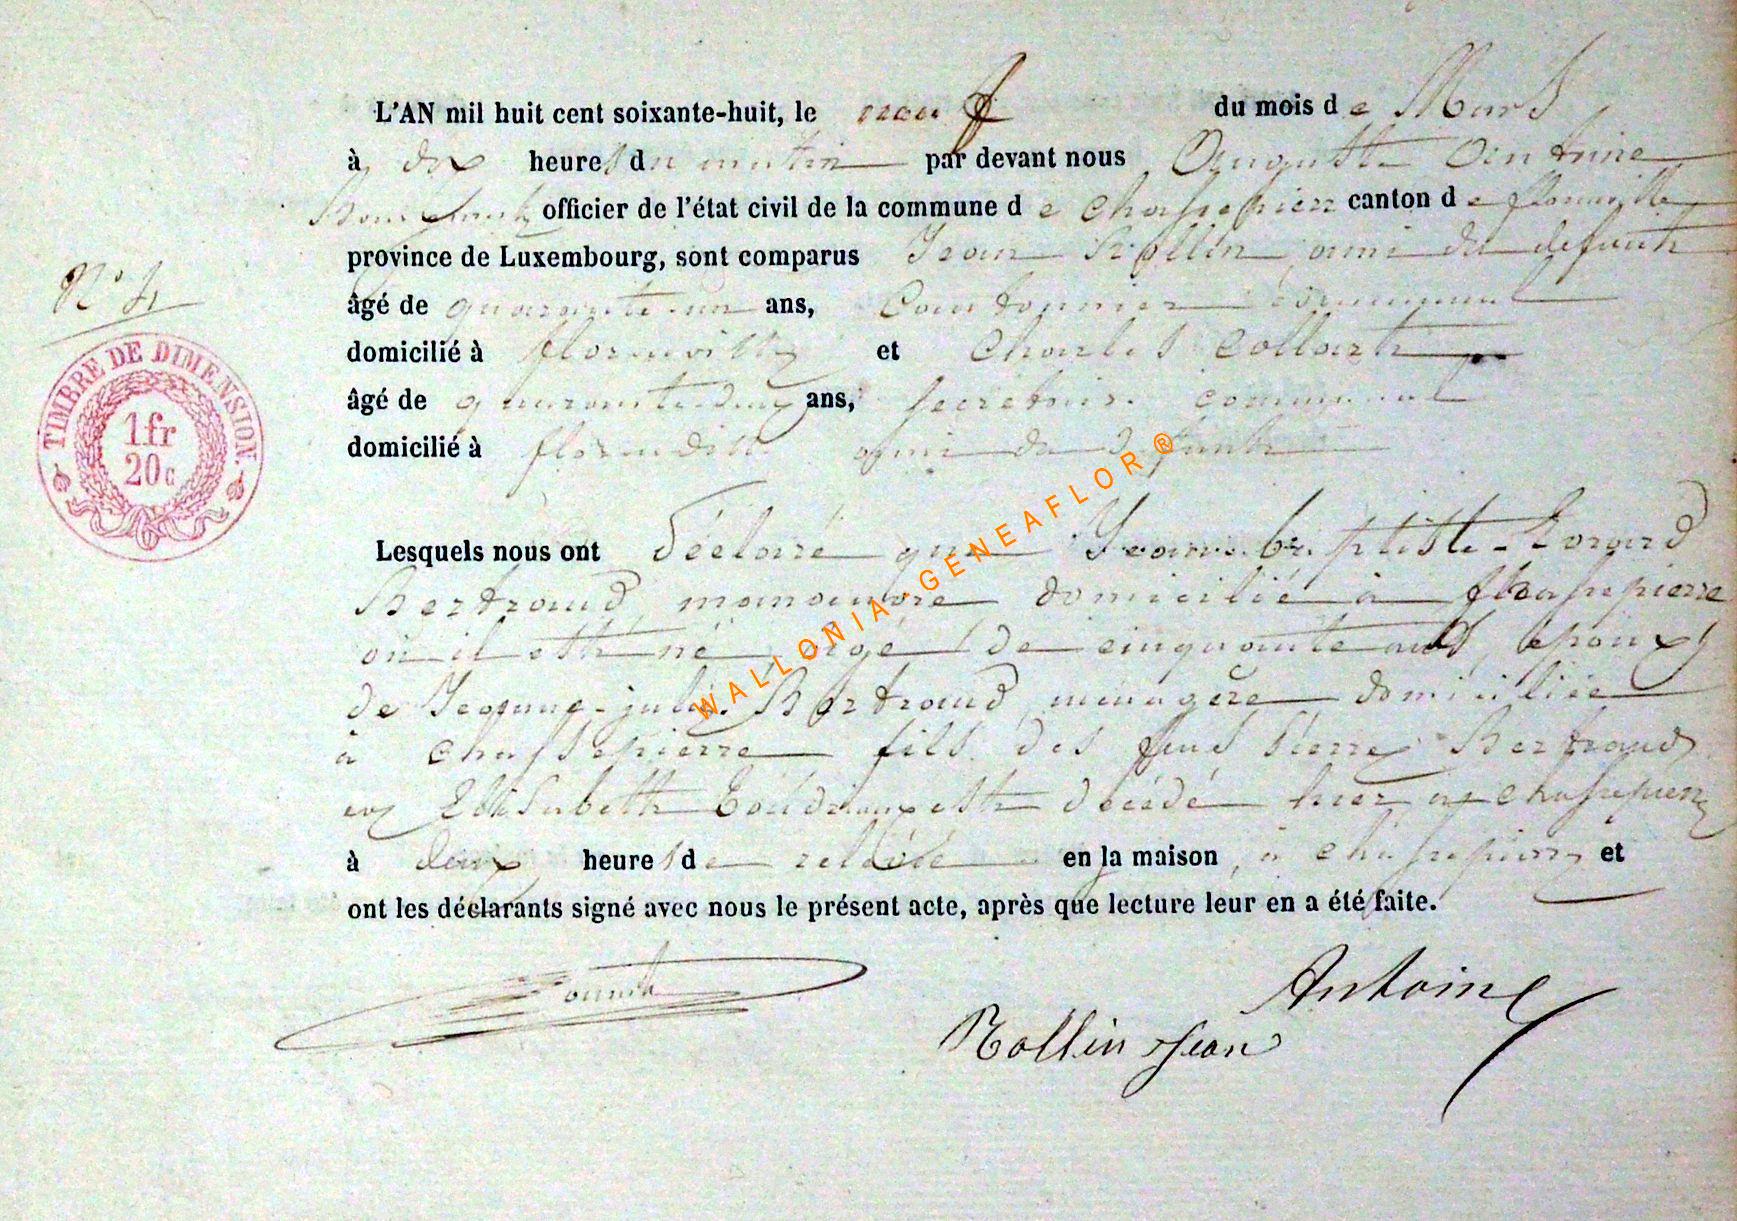 L'AN mil huit cent soixante-huit, le neuf du mois de Mars
à dix heures du matin par devant nous Auguste Antoine
officier de l'état civil de la commune de Chassepierre canton de florenville
province de Luxembourg, sont comparus Jean Rollin, ami du defunt
âgé de quarante un ans, Cantonnier communal
domicilié à florenville et Charles Collart
âgé de quarante deux ans, secrétaire communal
domicilié à florenville ami du défunt
Lesquels nous ont déclaré que Jean-baptiste
Bertrand, manoeuvre domicilié à Chassepierre
où il est né, agé de cinquante ans, époux
de Jeanne-julie Bertrand, ménagère domiciliée
à chassepierre fils des feus Pierre Bertrand
et Elisabeth est décédé hier à chassepierre
à deux heures de relevée en la maison, à chassepierre et
ont les déclarants signé avec nous le présent acte, après que lecture leur en a été faite.
Antoine
Rollin Jean
N° 4
TIMBRE DE DIMENSION.
1 fr
20 c
WALLONIA-GENEAFLOR ®